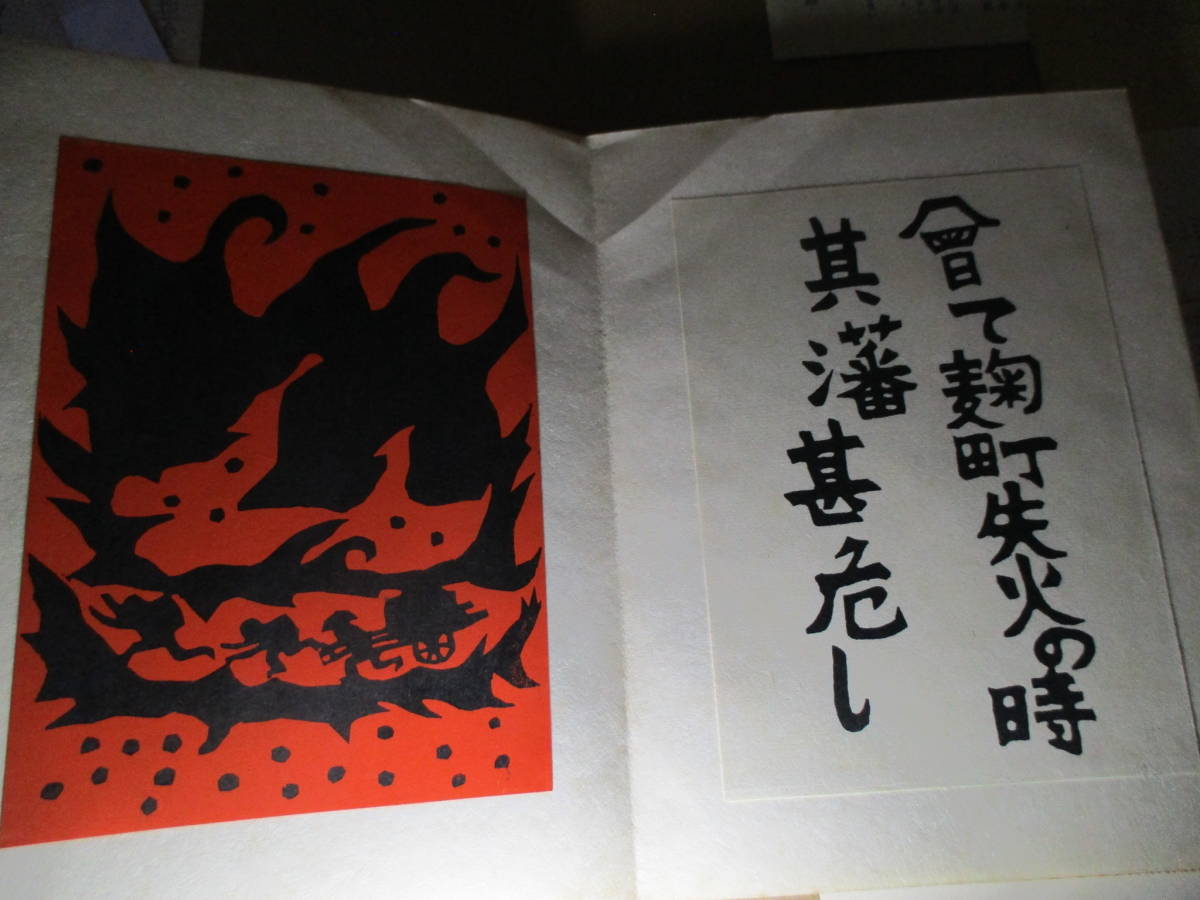 曾て麹町失火の時
其藩甚危し